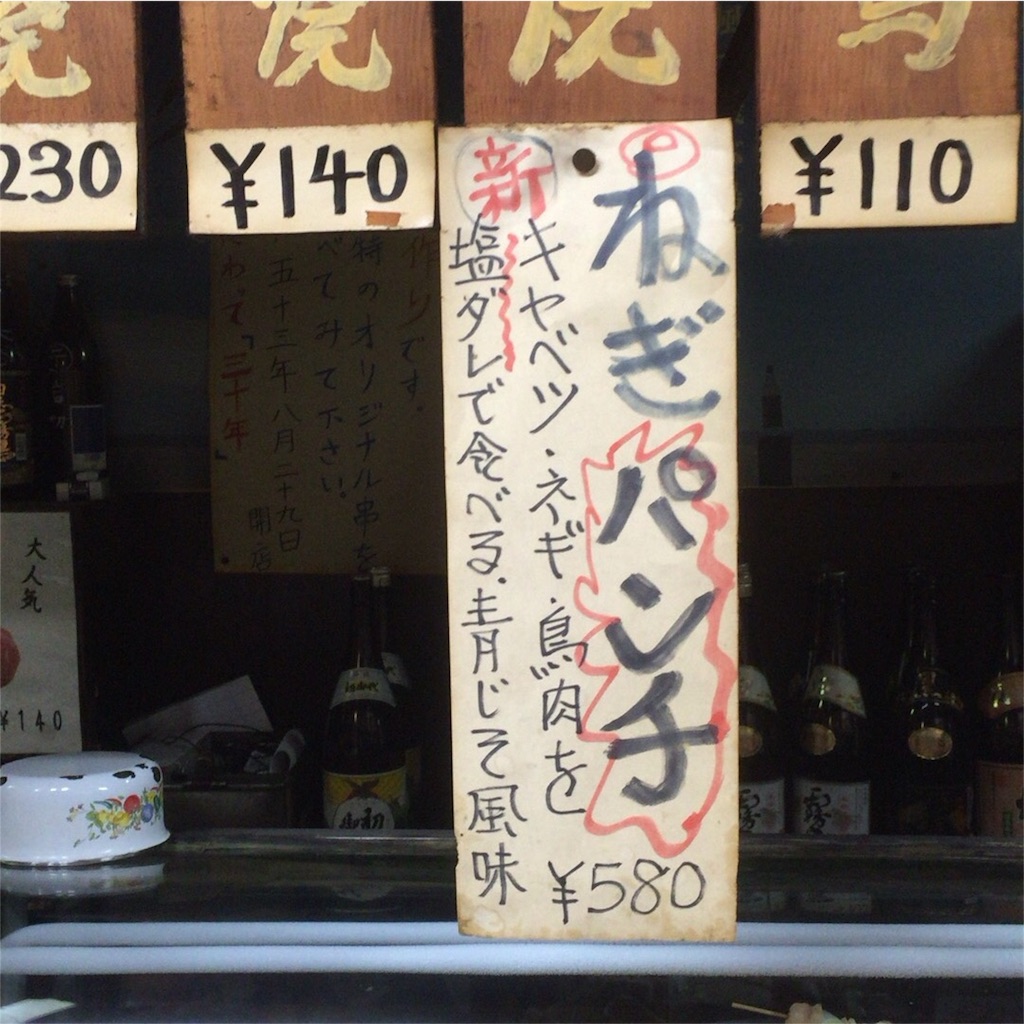 230
¥140
焼
¥110
新
ねぎパンチ
キャベツ・ネギ・鳥肉を
塩ダレで食べる、青じそ風味
¥580
作りです。
特のオリジナル串を
べてみて下さい。
五十三年八月二十九日
開店
わって「三十年」
大人気
¥140